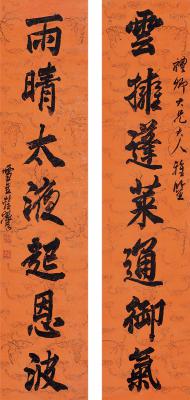 雲擁蓬萊通御氣
禮卿大兄大人雅鑒
雨晴太液起恩波